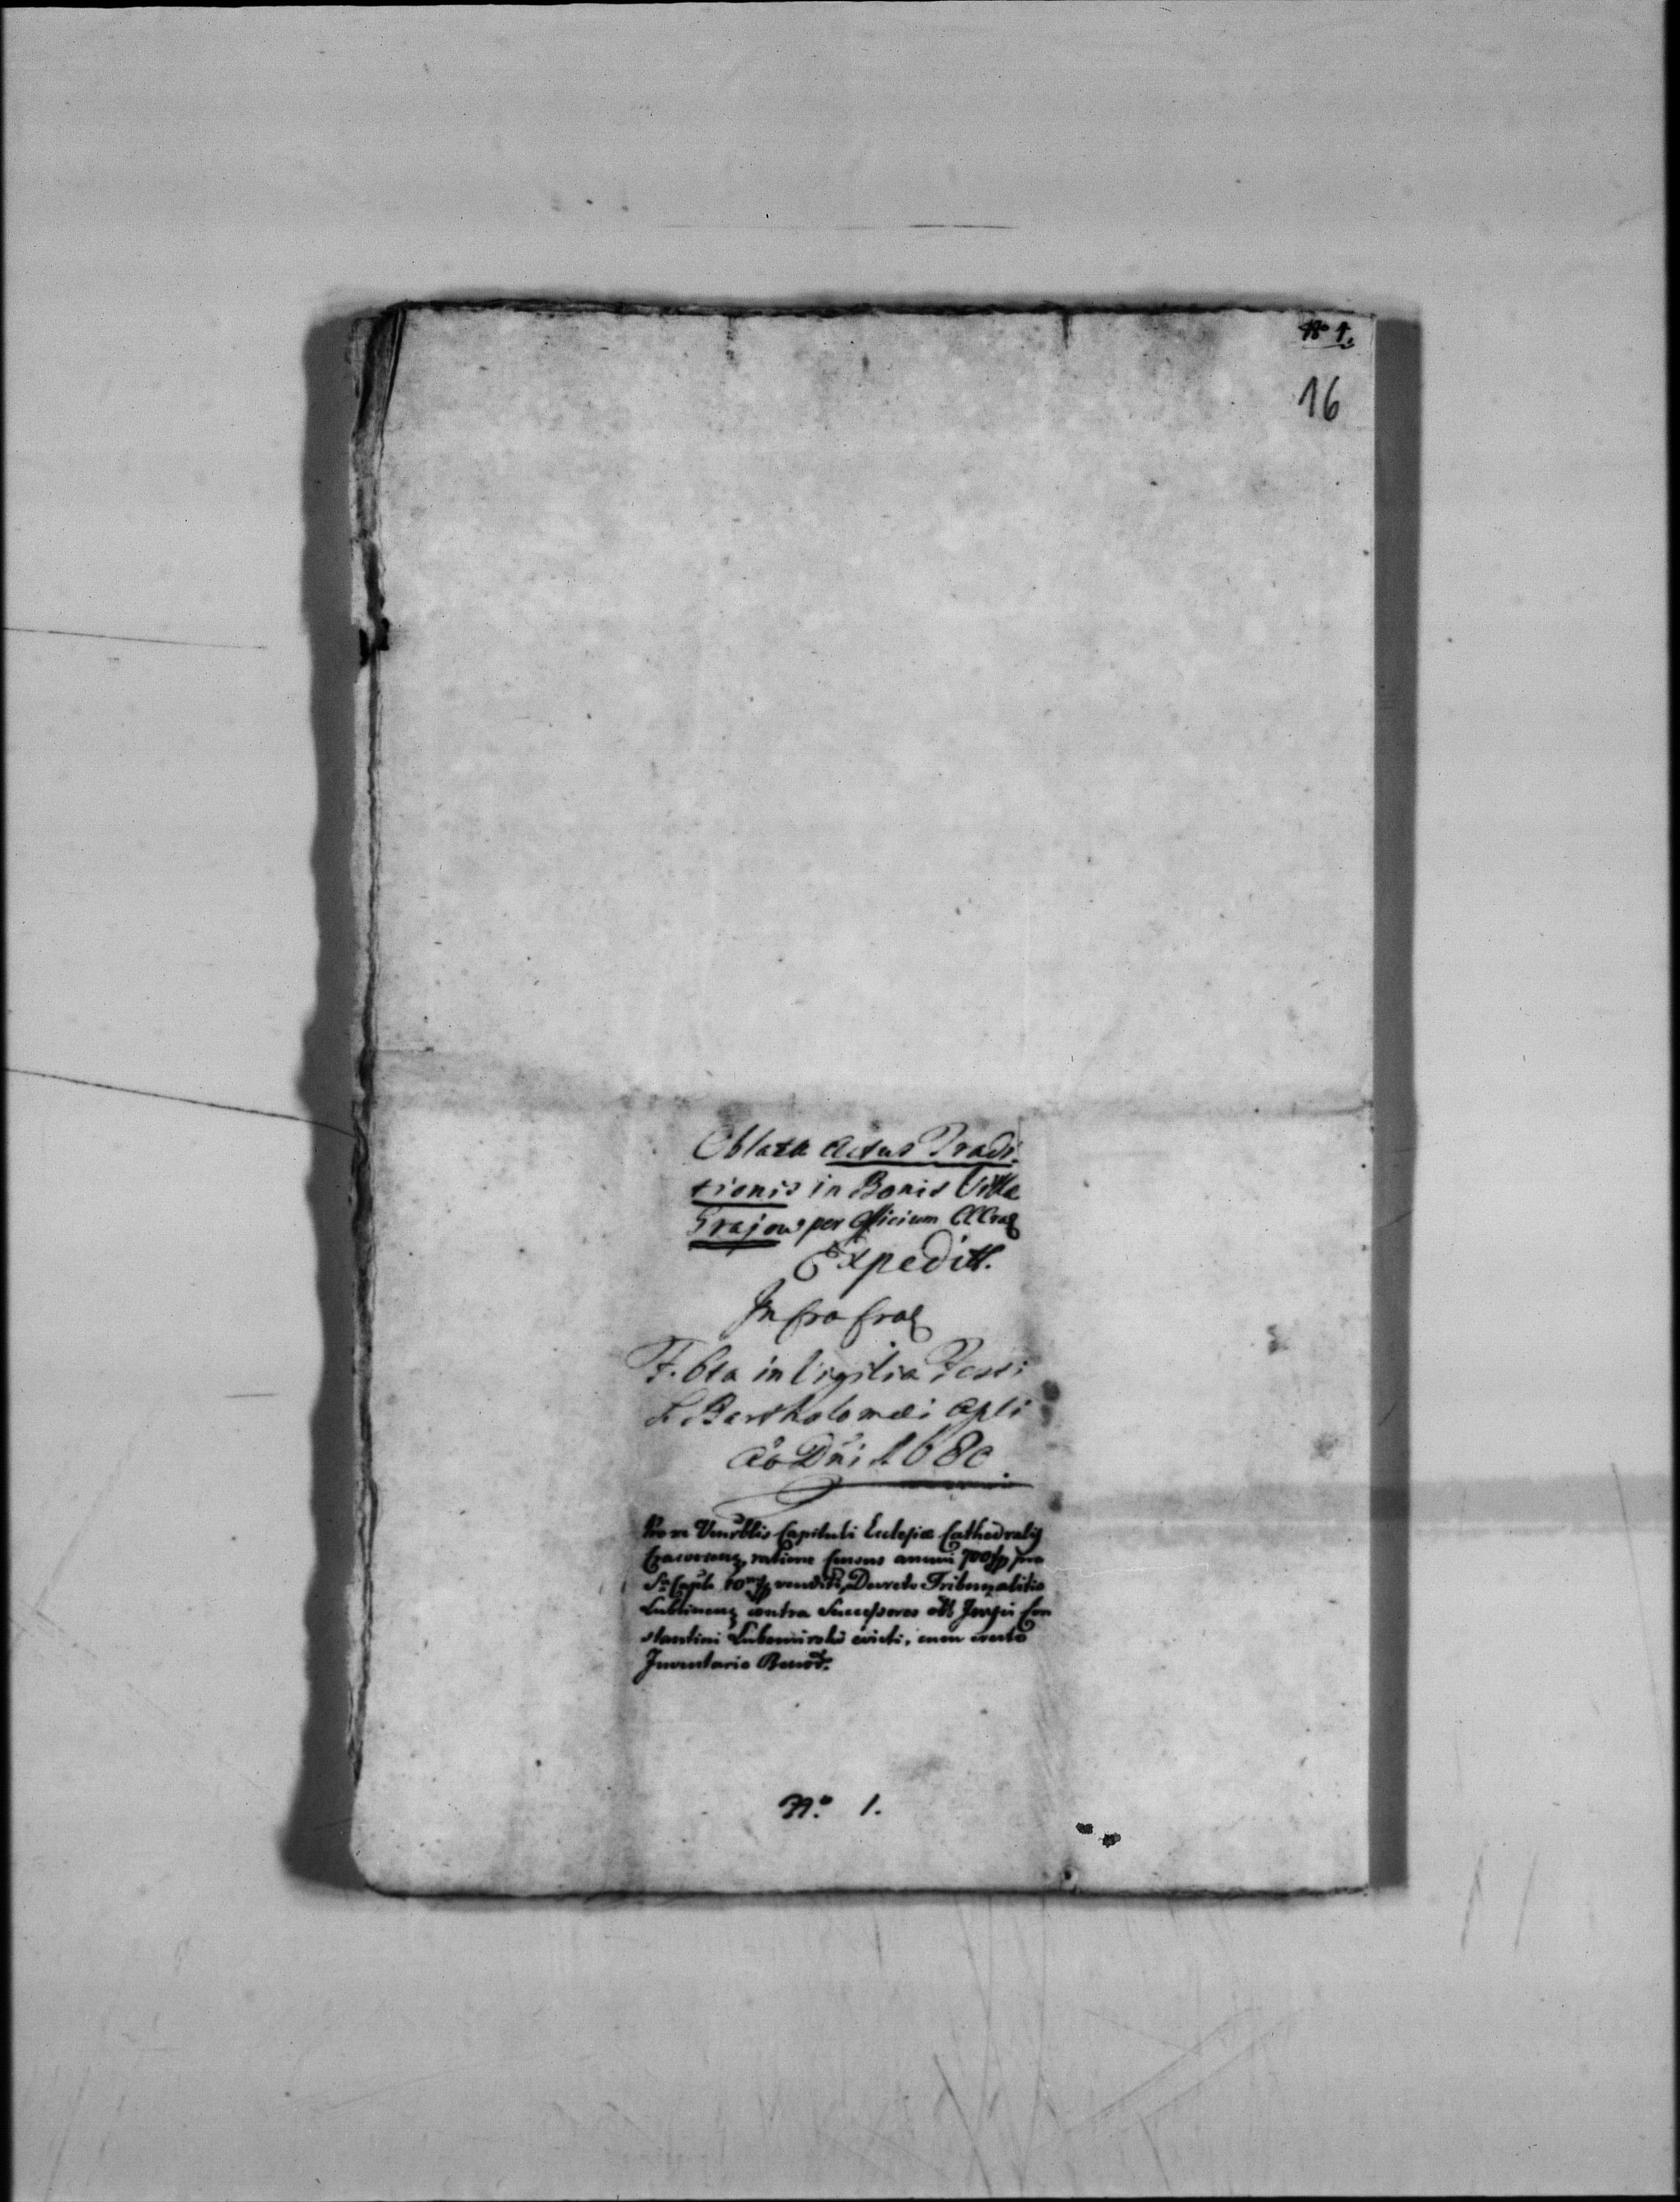 No 1.
16
Oblata Actus Tradi-
tionis in Bonis Villa
Grajow per Officium CCrac
Expedit.
In Cro Crac
F. 6ta in Vigilia Festi
S. Bartholomæi Apli
Ao Dni 1680
Pro re Venrblis Capituli Eclesiæ Cathedralis
Cracoviens, ratione Census annui 700 fp pro
Sa Capili 10 m fp venditi, Decreto Tribunalitio
Lublinens contra Successores olt Josephi Con
stantini Lubomirski evicti, cum erecto
Inventario Bonor.
No. 1.